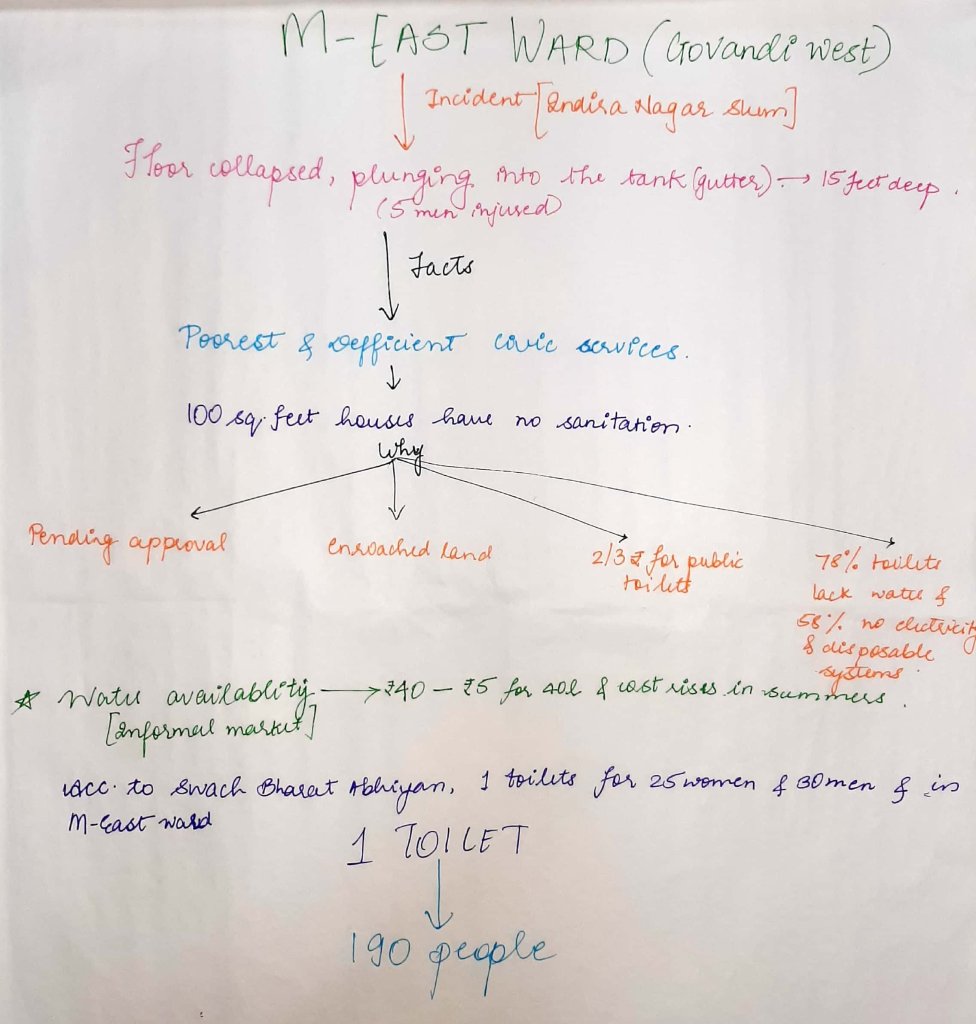 M-EAST WARD (Govandi west)
Incident [Indira Nagar slum]
Floor collapsed, plunging into the tank (gutter) → 15 feet deep.
(5 men injured)
Facts
Poorest & Defficient civic services.
100 sq. feet houses have no sanitation.
Why
Pending approval
enroached land
2/3 ₹ for public
toilets
78% toilets
lack water &
58% no electricity
& disposable
systems.
☆ Water availablity → ₹40 – ₹5 for 40l & cost rises in summers.
[Informal market]
Acc. to Swach Bharat Abhiyan, 1 toilets for 25 women & 30 men & in
M-East ward
1 TOILET
190 people